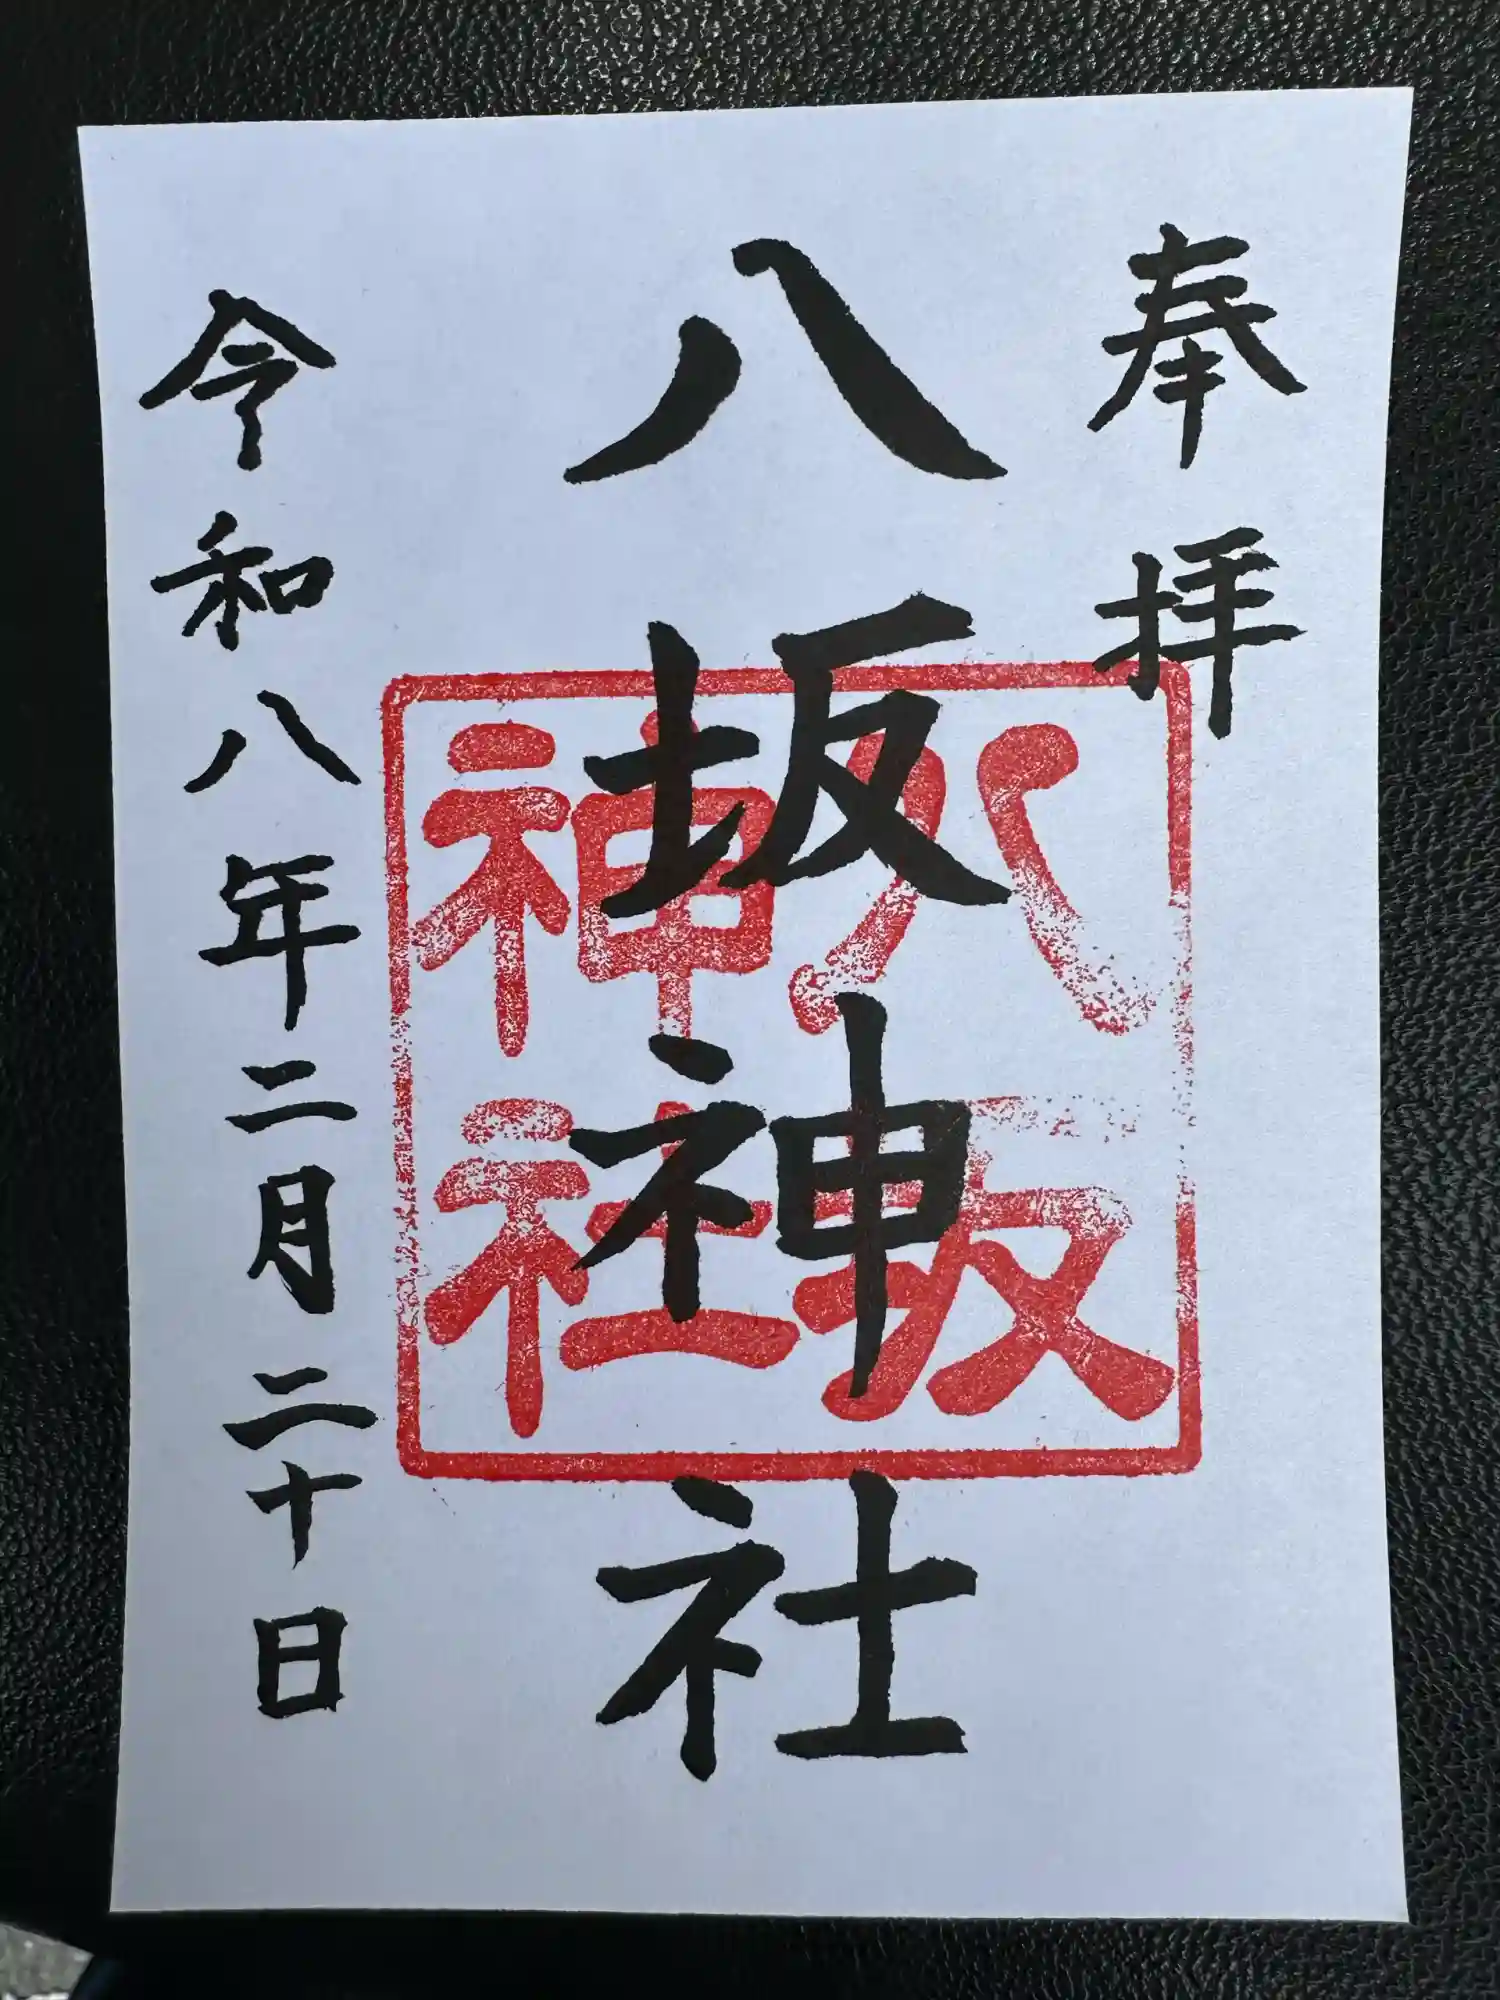 奉拝
八坂神社
八坂神社
令和八年二月二十日